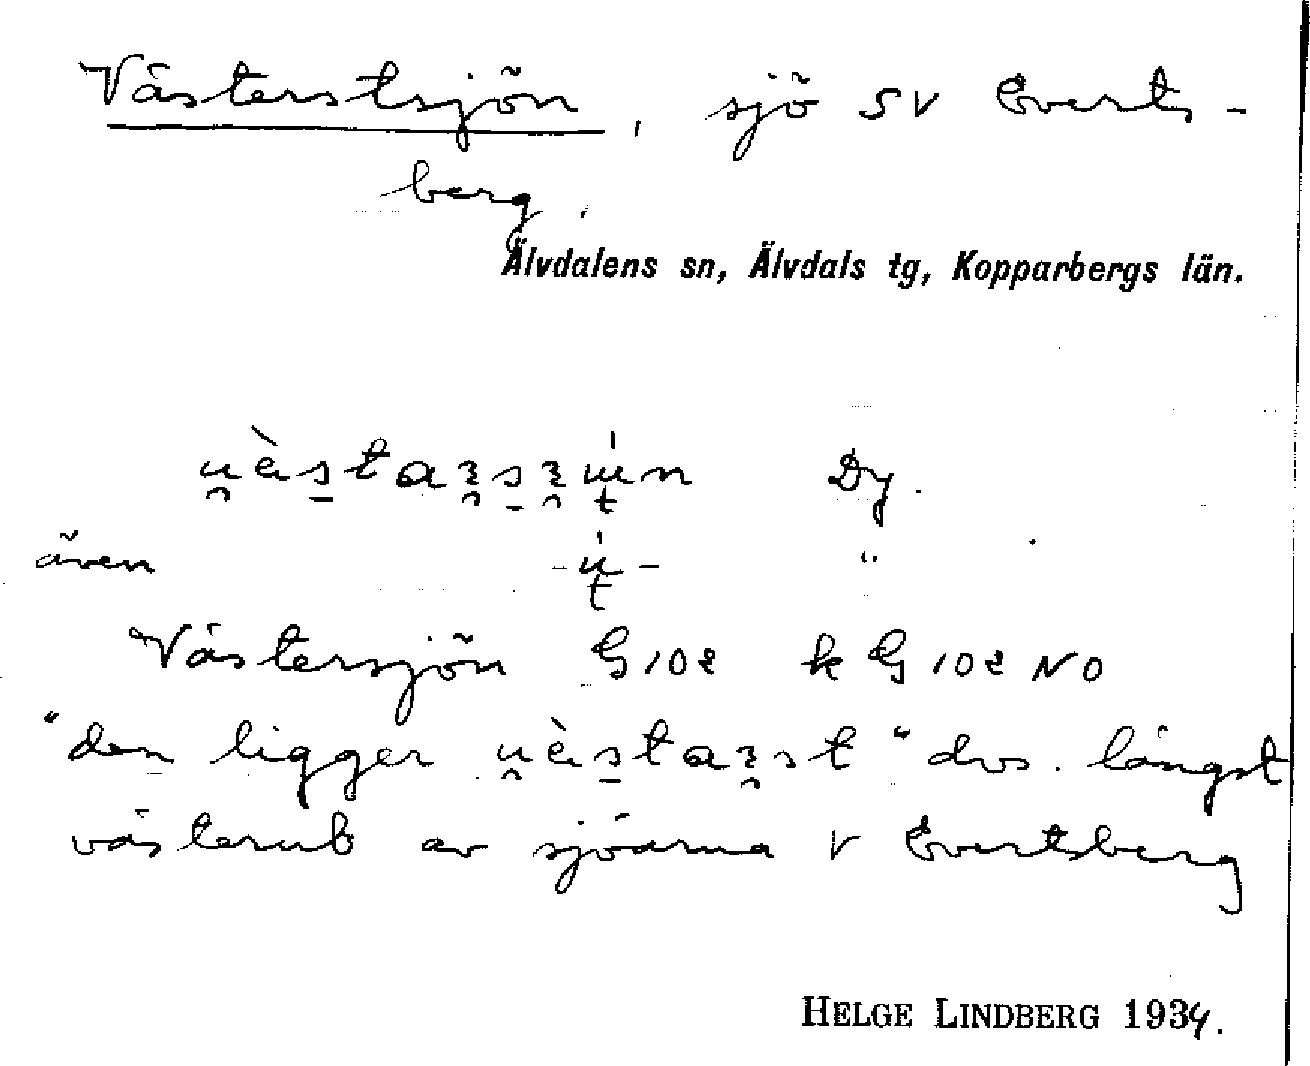 Västerstsjön, sjö SV Everts-
berg.
Älvdalens sn, Älvdals tg, Kopparbergs län.
Dy.
även "
Västersjön G102 k G102 NO
"den ligger " dvs. längst
västerut av sjöarna V Evertsberg
HELGE LINDBERG 1934.